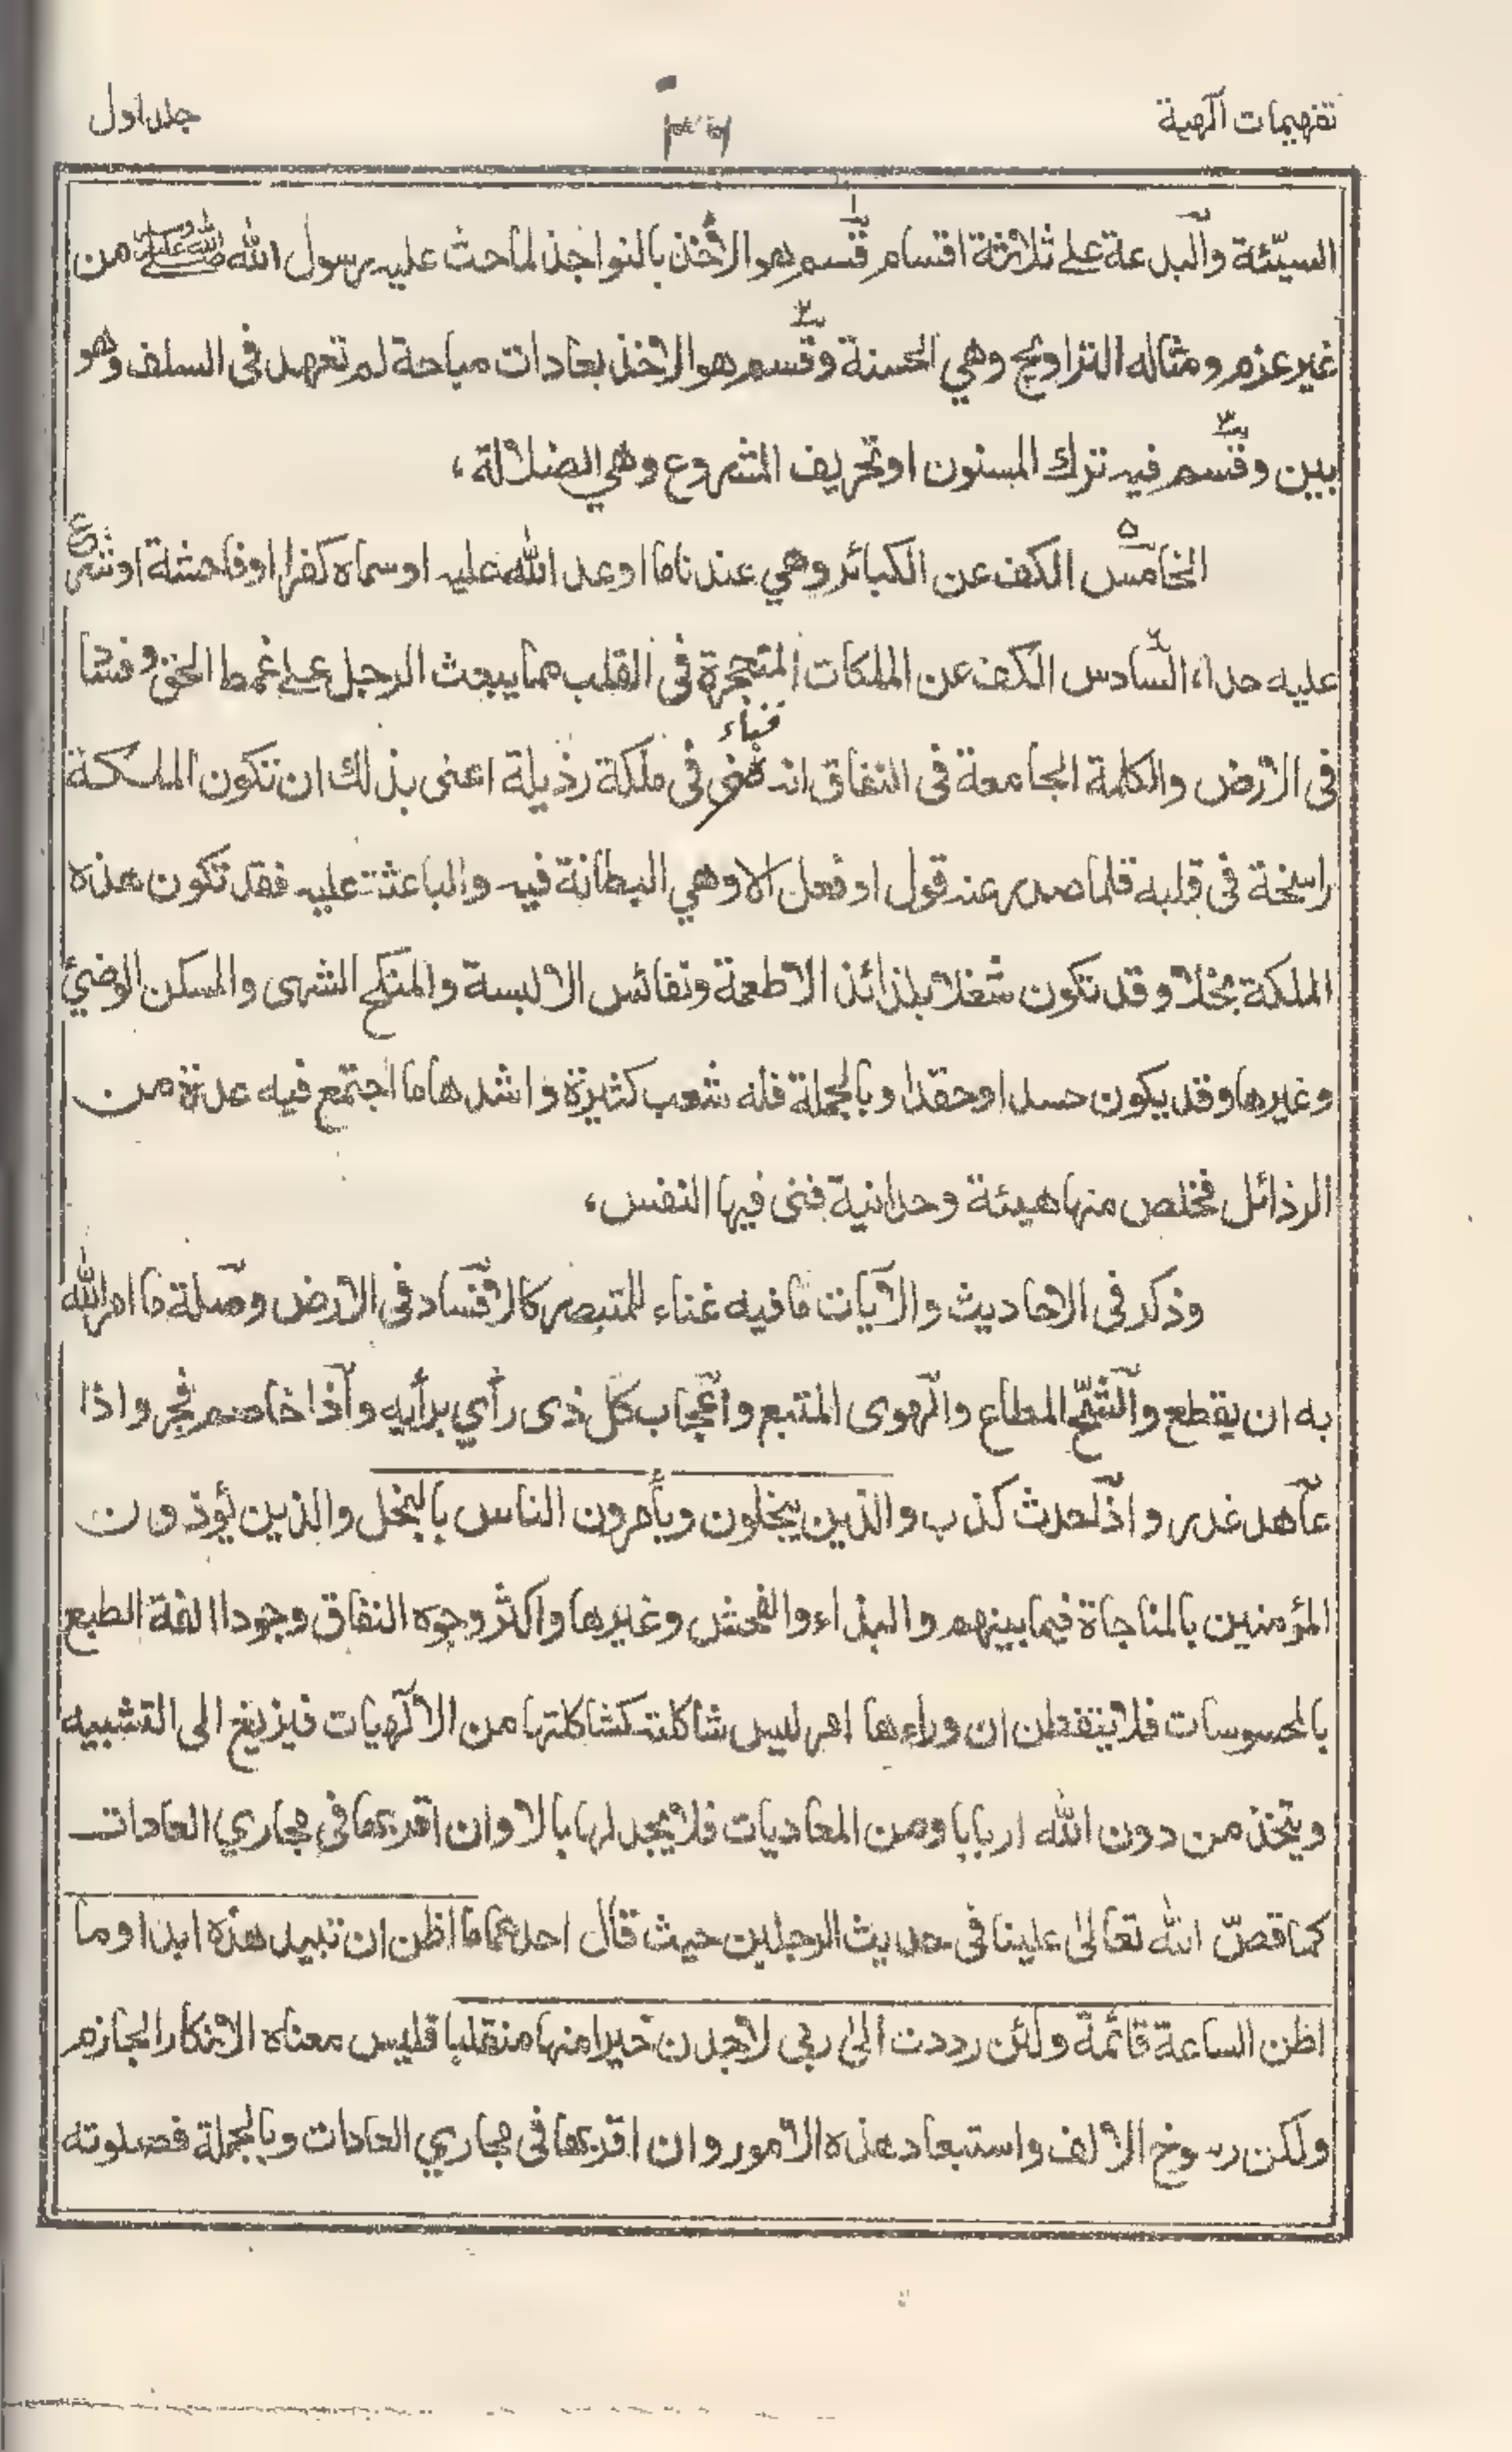 تفهيمات الٰهية
جلد اول
السيّئة والبدعة على ثلاثة اقسام قسم هو الأخذ بالنواجذ لما حث عليه رسول الله ﷺ من
غير عزم ومثاله التراويح وهي الحسنة وقسم هو الاخذ بعادات مباحة لم تعهد فى السلف وهو
بين وقسم فيه ترك المسنون او تحريف المشروع وهي الضلالة ،
الخامس الكف عن الكبائر وهي عندنا ما اوعد الله عليه او سماه كفرا او فاحشة او شرع
عليه حدا، السادس الكف عن الملكات المتحجرة فى القلب مما يبعث الرجل على غمط الحق وفشا
فى الارض والكلمة الجامعة فى النفاق انه فنى فناء فى ملكة رذيلة اعنى بذلك ان تكون الملكة
راسخة فى قلبه قلما صدر عنه قول او فعل الا وهي البطانة فيه والباعثة عليه فقد تكون هذه
الملكة بخلا وقد تكون شغلا بلذائذ الاطعمة ونفائس الالبسة والمنكح الشهى والمسكن الوضئ
وغيرها وقد يكون حسدا او حقدا وبالجملة فله شعب كثيرة واشدها ما اجتمع فيه عدة من
الرذائل فخلص منها هيئة وحدانية فنى فيها النفس ،
وذكر فى الاحاديث والآيات ما فيه غناء للمتبصر كالافساد فى الارض وصلة ما امر الله
به ان يقطع والشحّ المطاع والهوى المتبع واعجاب كل ذى رأي برأيه واذا خاصم فجر واذا
عاهد غدر واذا حدث كذب والذين يبخلون ويأمرون الناس بالبخل والذين يؤذون
المؤمنين بالمناجاة فيما بينهم والبذاء والفحش وغيرها واكثر وجوه النفاق وجودا الفة الطبع
بالمحسوسات فلا يتفطن ان وراءها امر ليس شاكلته كشاكلتها من الالٰهيات فيزيغ الى التشبيه
ويتخذ من دون الله اربابا ومن المعاديات فلا يجد لها بالا وان اقر بها فى مجاري العادات
كما قصّ الله تعالىٰ علينا فى حديث الرجلين حيث قال احدهما ما اظن ان تبيد هذه ابدا وما
اظن الساعة قائمة ولئن رددت الىٰ ربى لاجدن خيرا منها منقلبا فليس معناه الانكار الجازم
ولكن رسوخ الالف واستبعاد هذه الامور وان اقر بها فى مجاري العادات وبالجملة فصلوته